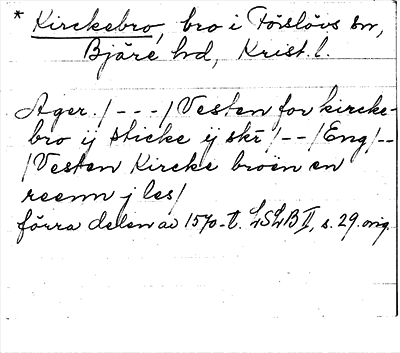 * Kirckebro, bro i Förslövs sn,
Bjäre hd, Krist. l.
Ager. /---/ Vesten for kircke-
bro ij sticke ij skr /--/ Eng /--
/ Vesten Kircke broen en
reenn j les/
förra delen av 1570-t. LSLB II, s. 29. orig.